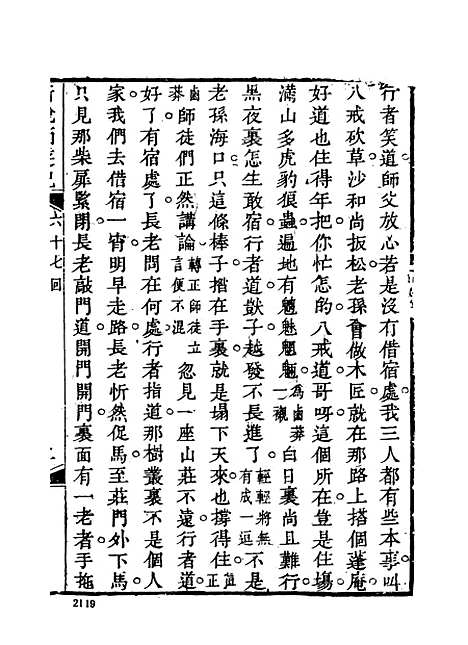 行者笑道師父放心若是沒有借宿處我三人都有些本事叫
八戒砍草沙和尚扳松老孫會做木匠就在那路上搭個蓬庵
好道也住得年把你忙怎的八戒道哥呀這個所在豈是住塲
滿山多虎豹狼蟲遍地有魑魅魍魎為鹵莽一襯白日裏尚且難行
黑夜裏怎生敢宿行者道獃子越發不長進了輕輕將無有成一逗不是
老孫海口只這條棒子揝在手裏就是塌下天來也撐得住正
師徒們正然講論轉正師徒立言便不混忽見一座山莊不遠行者道
好了有宿處了長老問在何處行者指道那樹叢裏不是個人
家我們去借宿一宵明早走路長老忻然促馬至莊門外下馬
只見那柴扉緊閉長老敲門道開門開門裏面有一老者手拖
六十七回
2119